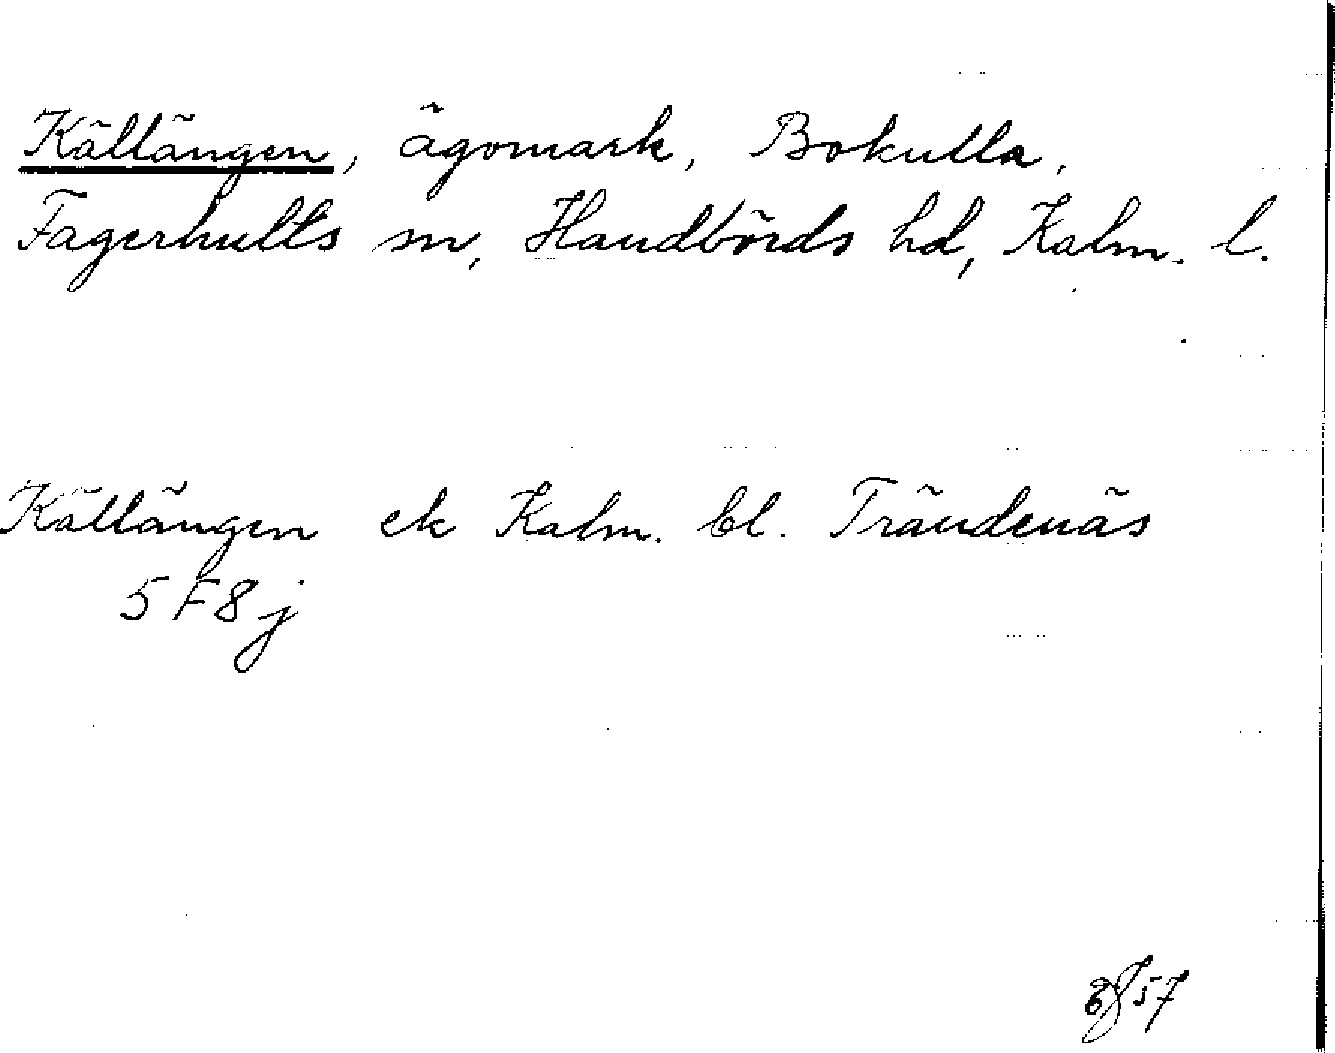 Källängen, ägomark, Bokulla,
Fagerhults sn, Handbörds hd, Kalm. l.
Källängen ek Kalm. bl. Trändenäs
5F8j